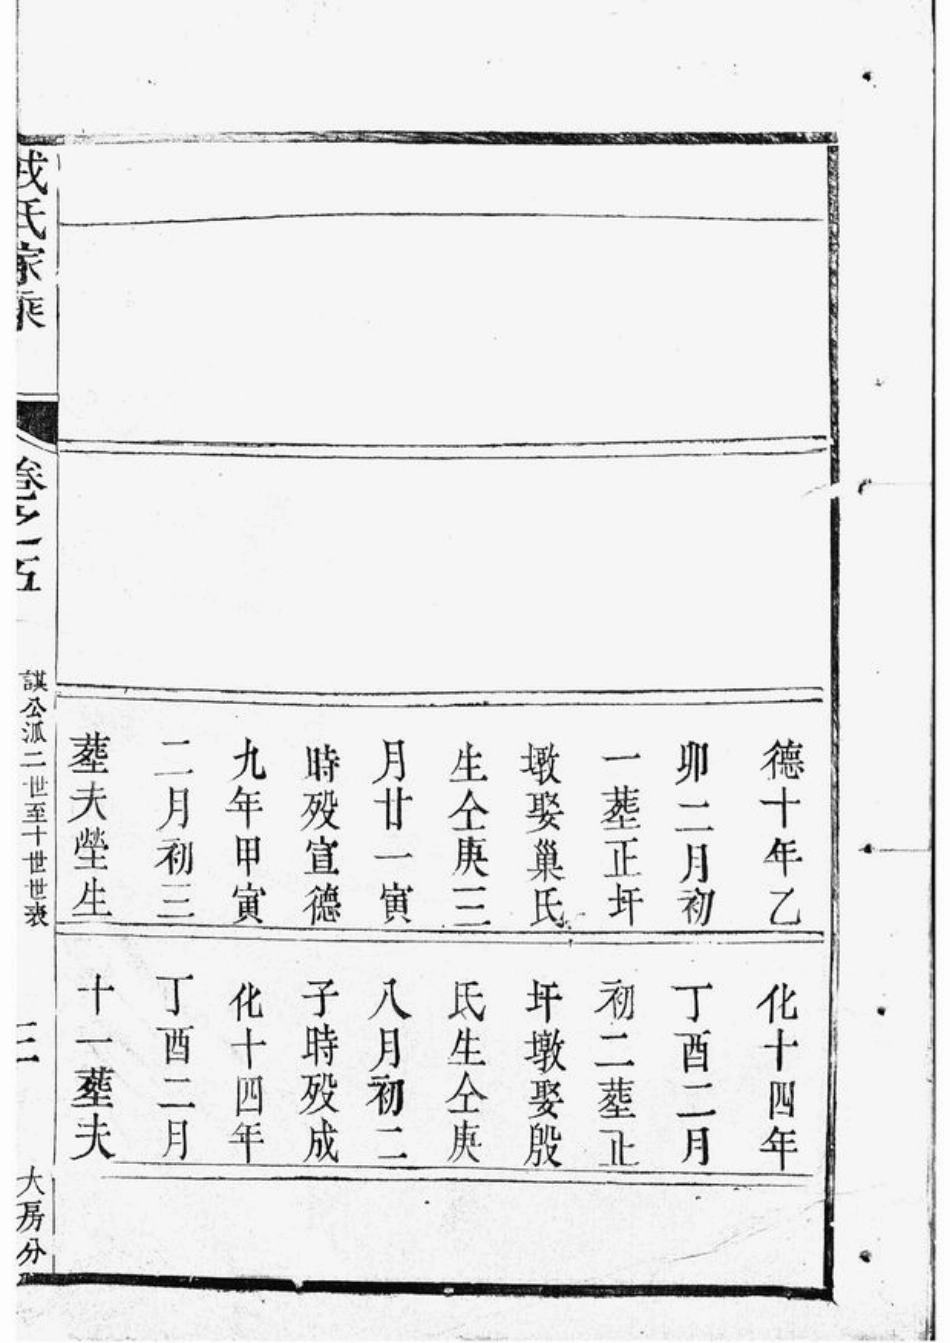 德十年乙
卯二月初
一塟正圩
墩娶巢氏
生仝庚三
月廿一寅
時殁宣德
九年甲寅
二月初三
塟夫塋生
化十四年
丁酉二月
初二塟止
圩墩娶殷
氏生仝庚
八月初二
子時殁成
化十四年
丁酉二月
十一塟夫
氏家乘
卷之五
諆公派二世至十世世表
三
大房分